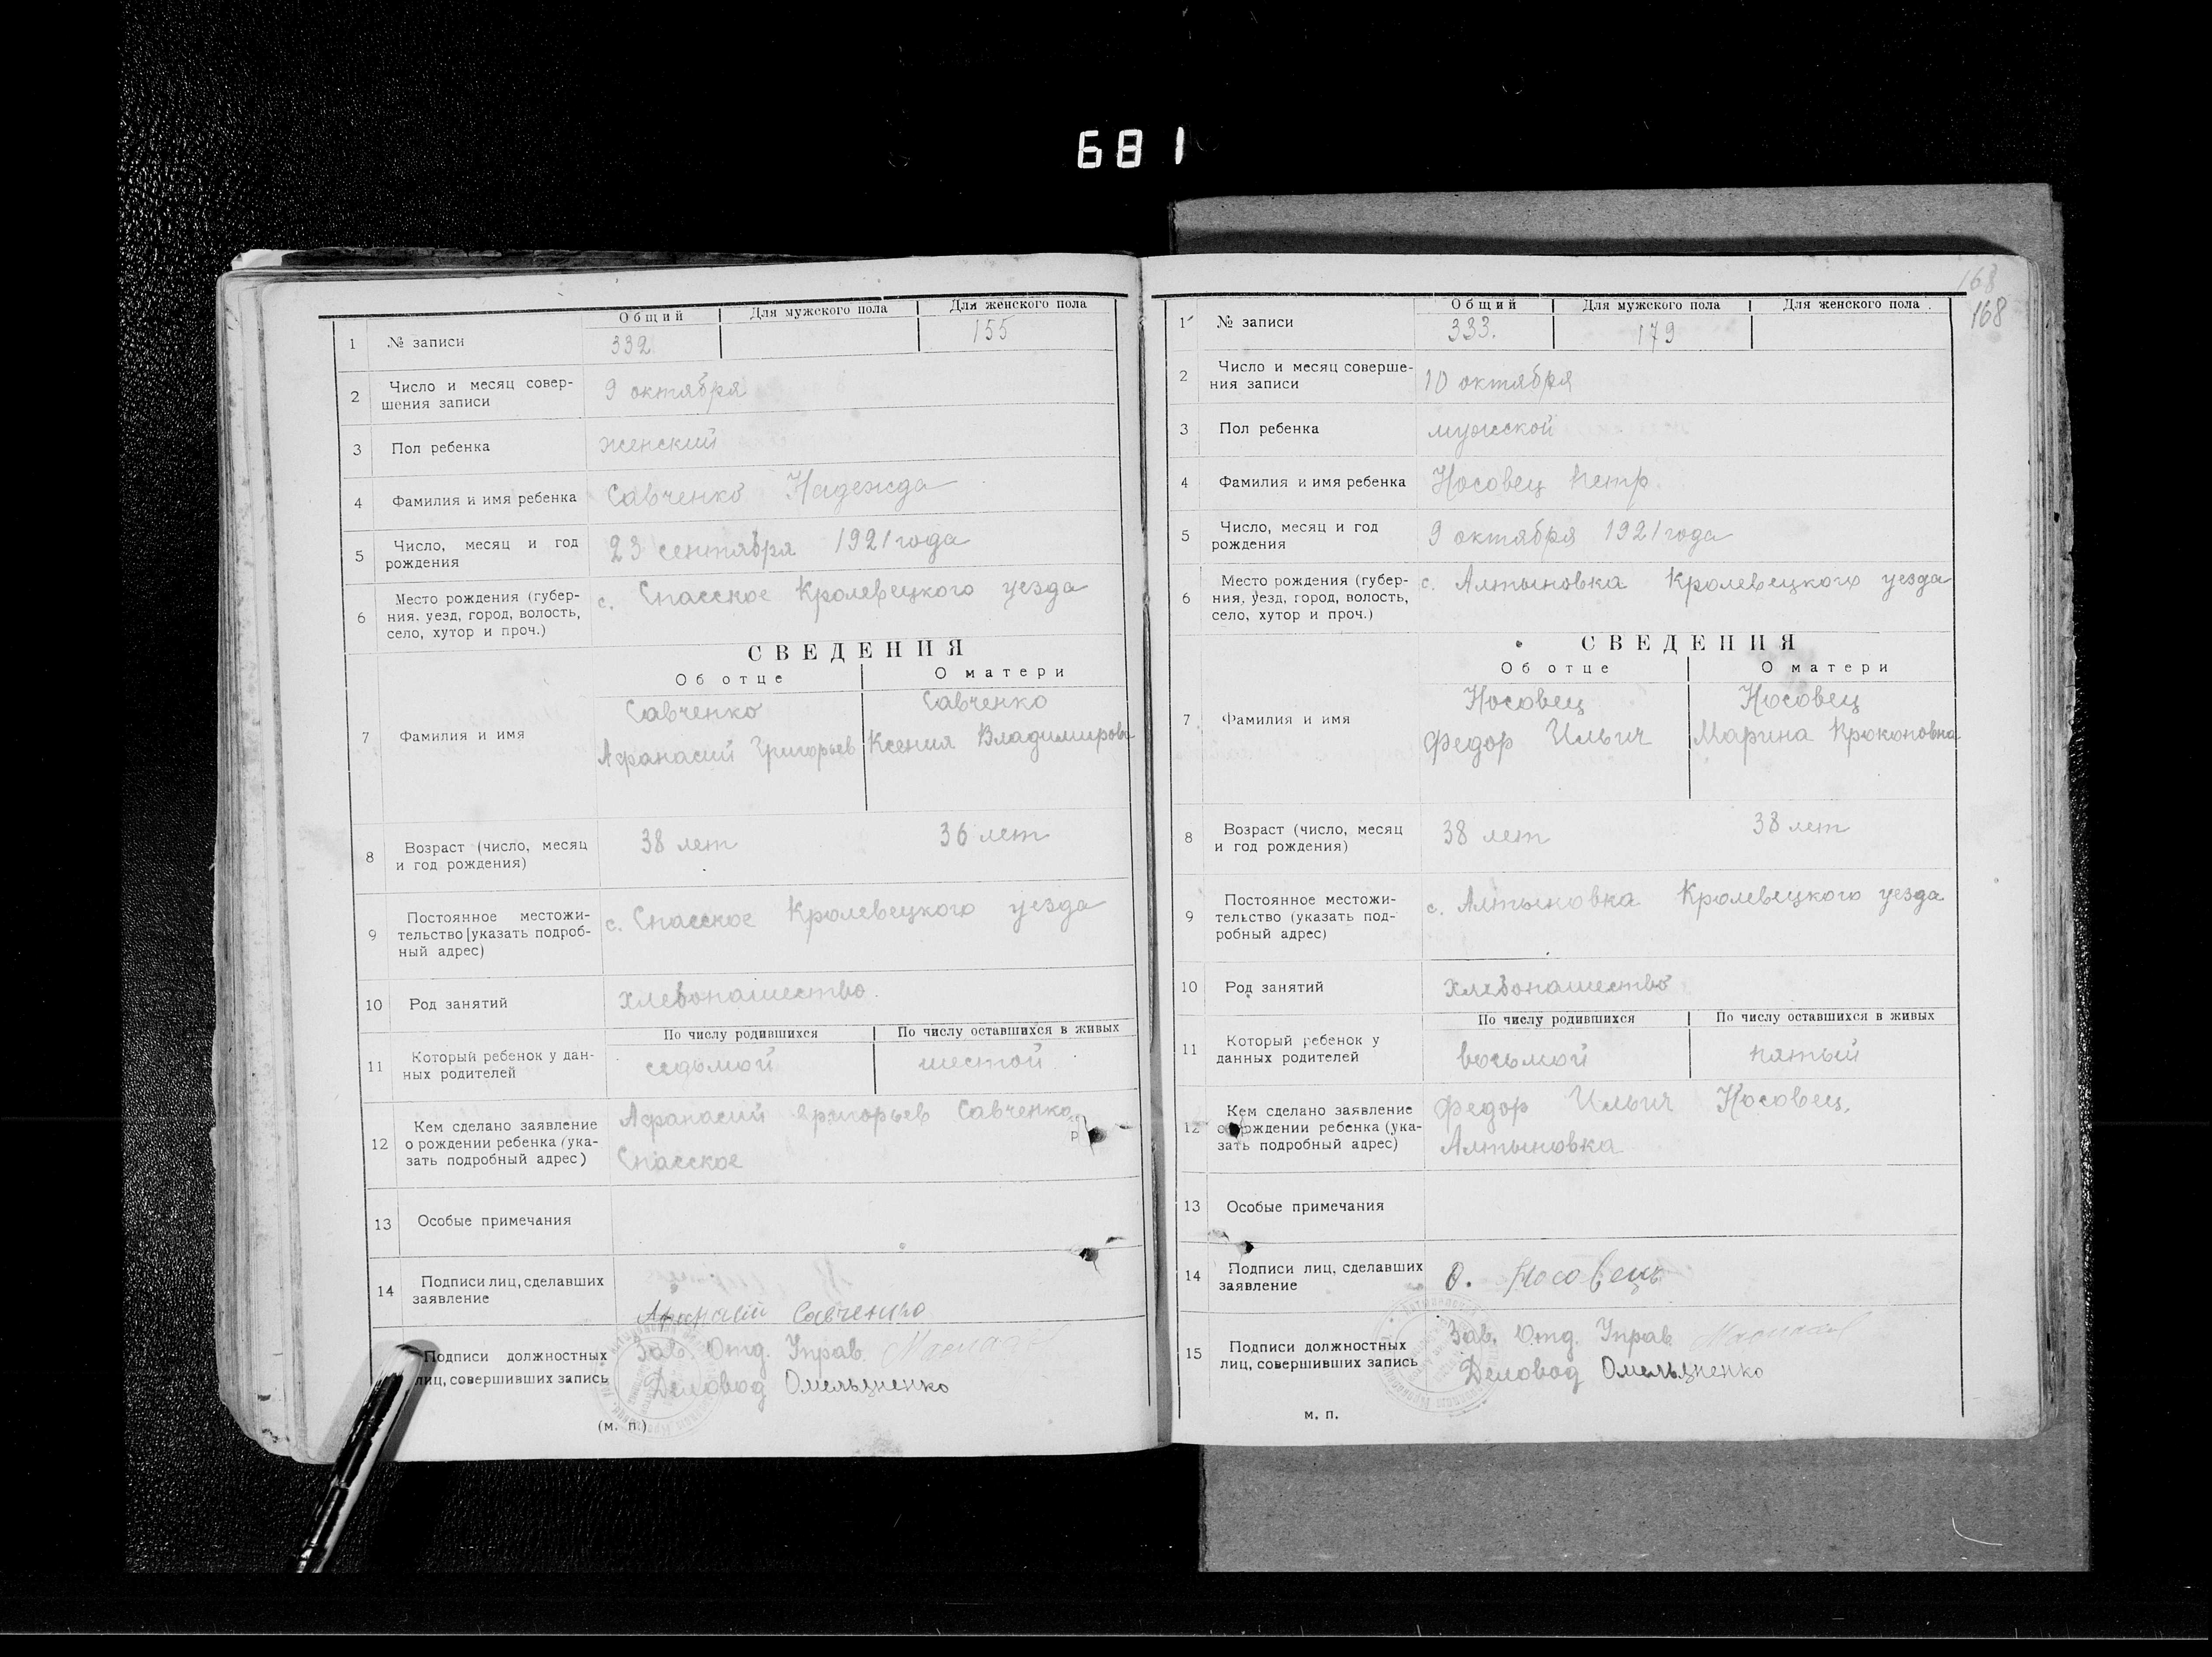 681
Общий Для мужского пола Для женского пола
1 № записи 332. 155
2 Число и месяц совер-
шения записи 9 октября
3 Пол ребенка женский
4 Фамилия и имя ребенка Савченко Надежда
5 Число, месяц и год
рождения 23 сентября 1921 года
6 Место рождения (губер-
ния, уезд, город, волость,
село, хутор и проч.) с. Спасское Кролевецкого уезда
СВЕДЕНИЯ
Об отце О матери
7 Фамилия и имя Савченко Савченко
Афанасий Григорьев Ксения Владимировна
8 Возраст (число, месяц
и год рождения) 38 лет 36 лет
9 Постоянное местожи-
тельство [указать подроб-
ный адрес) с. Спасское Кролевецкого уезда
10 Род занятий хлебопашество
По числу родившихся По числу оставшихся в живых
11 Который ребенок у дан-
ных родителей седьмой шестой
12 Кем сделано заявление
о рождении ребенка (ука-
зать подробный адрес) Афанасий Григорьев Савченко
Спасское
13 Особые примечания
14 Подписи лиц, сделавших
заявление Афанасий Савченко
Подписи должностных
лиц, совершивших запись Зав. Отд. Управ.
Деловод Омельяненко
(м. п.)
168
168
Общий Для мужского пола Для женского пола
1 № записи 333. 179
2 Число и месяц соверше-
ния записи 10 октября
3 Пол ребенка мужской
4 Фамилия и имя ребенка Носовец Петр
5 Число, месяц и год
рождения 9 октября 1921 года
6 Место рождения (губер-
ния, уезд, город, волость,
село, хутор и проч.) с. Алтыновка Кролевецкого уезда
СВЕДЕНИЯ
Об отце О матери
7 Фамилия и имя Носовец Носовец
Федор Ильич Марина Прокоповна
8 Возраст (число, месяц
и год рождения) 38 лет 38 лет
9 Постоянное местожи-
тельство (указать под-
робный адрес) с. Алтыновка Кролевецкого уезда
10 Род занятий хлебопашество
По числу родившихся По числу оставшихся в живых
11 Который ребенок у
данных родителей восьмой пятый
12 Кем сделано заявление
о рождении ребенка (ука-
зать подробный адрес) Федор Ильич Носовец,
Алтыновка
13 Особые примечания
14 Подписи лиц, сделавших
заявление Ф. Носовець
15 Подписи должностных
лиц, совершивших запись Зав. Отд. Управ.
Деловод Омельяненко
м. п.